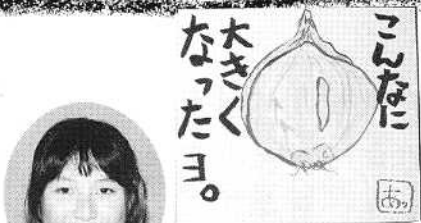 こんなに
大きく
なったヨ。